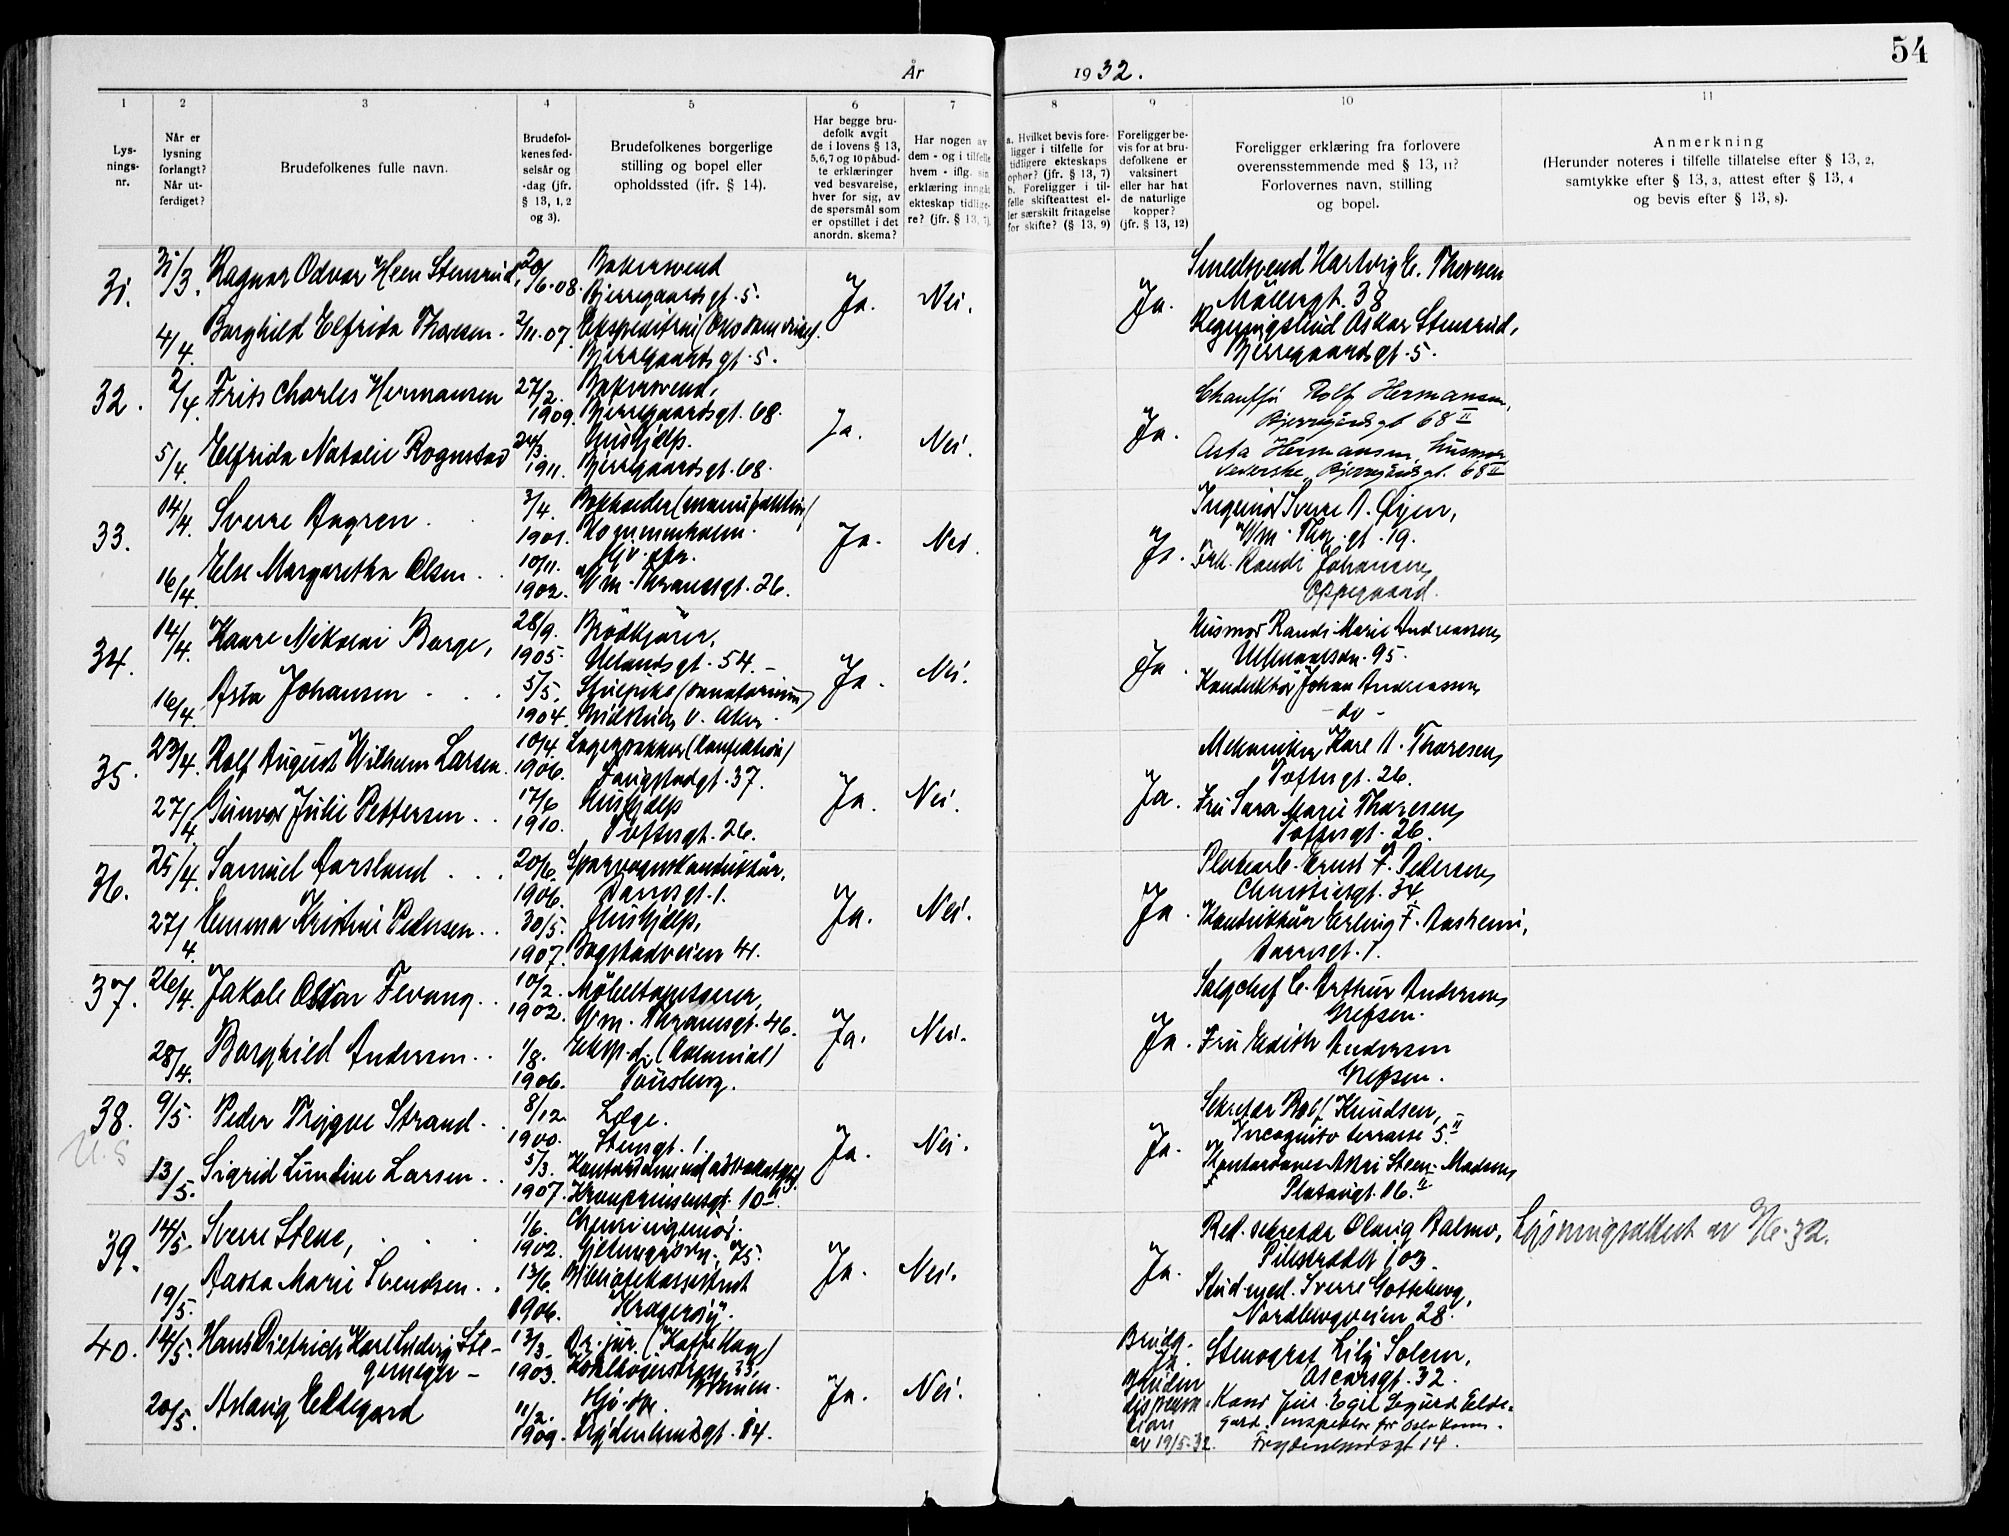 54
År 1932.
1 2 3 4 5 6 7 8 9 10 11
Lys-
nings-
nr.
Når er
lysning
forlangt?
Når ut-
ferdiget?
Brudefolkenes fulle navn.
Brudefol-
kenes fød-
selsår og
-dag (jfr.
§ 13, 1, 2
og 3).
Brudefolkenes borgerlige
stilling og bopel eller
opholdssted (ifr. § 14).
Har begge bru-
defolk avgit
de i lovens § 13,
5, 6, 7 og 10 påbud-
te erklæringer
ved besvarelse,
hver for sig, av
de spørsmål som
er opstillet i det
anordn. skema?
Har nogen av
dem - og i tilfelle
hvem - iflg. sin
erklæring inngått
ekteskap tidlige-
re? (jfr. § 13, 7).
a. Hvilket bevis fore-
ligger i tilfelle for
tidligere ekteskaps
ophør? (jfr. § 13, 7)
b. Foreligger i til-
felle skifteattest el-
ler særskilt fritagelse
for skifte? (§ 13, 9)
Foreligger be-
vis for at bru-
defolkene er
vaksinert
eller har hat
de naturlige
kopper?
(jfr. § 13, 12)
Foreligger erklæring fra forlovere
overensstemmende med § 13, 11?
Forlovernes navn, stilling
og bopel.
Anmerkning
(Herunder noteres i tilfelle tillatelse efter § 13, 2,
samtykke efter § 13, 3, attest efter § 13, 4
og bevis efter § 13, 8).
31. 31/3. Ragnar Odvar Heen Stensrud, 20/6.08. Bakersvend
Bjerregaardsgt. 5. Ja. Nei. Ja. Smedsvend Hartvig E. Thoresen
Møllergt. 38
4/4. Borghild Elfrida Thoresen. 2/11.07. Ekspeditrise
Bjerregaardsgt. 5. Oskar Stensrud,
Bjerregaardsgt. 5.
32. 2/4. Frits Charles Hermansen 27/2. 1909. Bakersvend,
Bjerregaardsgt. 68. Ja. Nei. Ja. Chauffør Rolf Hermansen,
Bjerregårdsgt 68 II
5/4. Elfrida Natalie Rognstad 24/3. 1911. Hushjelp.
Bjerregaardsgt. 68. Asta Hermansen, husmor
Bjerregårdsgt. 68 II
33. 14/4. Sverre Aagren. 3/4. 1901. Bokholder (manufaktur)
Kommenholm. Ja. Nei. Ja. Ingeniør Sverre A. Øyen,
Wm. Thr. gt. 19.
16/4. Else Margarethe Olsen. 10/11. 1902. Hjv. dtr.
Wm. Thranesgt. 26. Frk. Randi Johansen
Oppegaard.
34. 14/4. Kaare Nikolai Borge, 28/9. 1905. Brødkjører,
Uelandsgt. 54. Ja. Nei. Ja. Husmor Randi Marie Andreassen
95.
16/4. Asta Johansen 5/5. 1904. Stuepike (sanatorium)
v. Aker. Konduktør Johan Andreassen
- do -
35. 23/4. Rolf August Wilhelm Larsen. 10/4. 1906. Lagerpakker (konfektion)
37. Ja. Nei. Ja. Mekaniker Kåre A. Thoresen,
Toftesgt. 26.
27/4. Gunvor Julie Pettersen. 17/6 1910. Hushjelp
Toftesgt. 26. Fru Sara Marie Thoresen
Toftesgt. 26.
36. 25/4. Samuel Aarsland 20/6. 1906. Sporvognskonduktør,
gt. 1. Ja. Nei. Ja. Platearb. Ernst F. Pedersen
Christiesgt. 34.
27/4. Emma Kristine Pedersen. 30/5. 1907. Hushjelp,
Bogstadveien 41. Konduktør Erling F. Aasheim,
gt. 1.
37. 26/4. Jakob Oskar Fevang. 10/2. 1902. Møbeltapetserer,
Wm. Thranesgt. 46. Ja. Nei. Ja. Salgchef C. Arthur Andersen
Grefsen.
28/4. Borghild Andersen. 1/8. 1906. Eksp. d. (Kolonial)
Tønsberg. Fru Edith Andersen
Grefsen.
38. 9/5. Peder Trygve Strand. 8/12 1900. Læge.
Stensgt. 1. Ja. Nei. Ja. Sekretær Rolf Knudsen,
Incognito terrasse 5. II
U. S 13/5. Sigrid Lundine Larsen. 5/3. 1907. Kontordame
Kronprinsensgt. 10 II. Kontordame Steen-Madsen
Platousgt. 16. II
39. 14/5. Sverre Stene, 1/6. 1902. Chemiingeniør.
75. Ja. Nei. Ja. Red. sekretær Olavig Balmo,
Pilestrædet 103. Lysningsattest av 9/6.32.
19/5. Aasta Marie Svendsen. 13/6. 1906. Biblioteksassistent
Kragerøy. Stud. med. Sverre Gotteberg,
Nordbergveien 28.
40. 14/5. Hans Dietrich Karl Ludvig Ste-
germeyer 13/3. 1903. Dr. jur. (Kaffe Hag)
33, Bremen. Ja. Nei. Brudg. Ja. Stenograf Lily Solem,
Oscarsgt. 32.
20/5. Aslaug Eldegard 11/2. 1909. Hjv. dtr.
Frydenlundsgt. 14. Bruden
dispensa-
tion
av 19/5.32. Kand jur. Egil Sigurd Elde-
gard, inspektør for Oslo komm.
Frydenlundsgt 14.